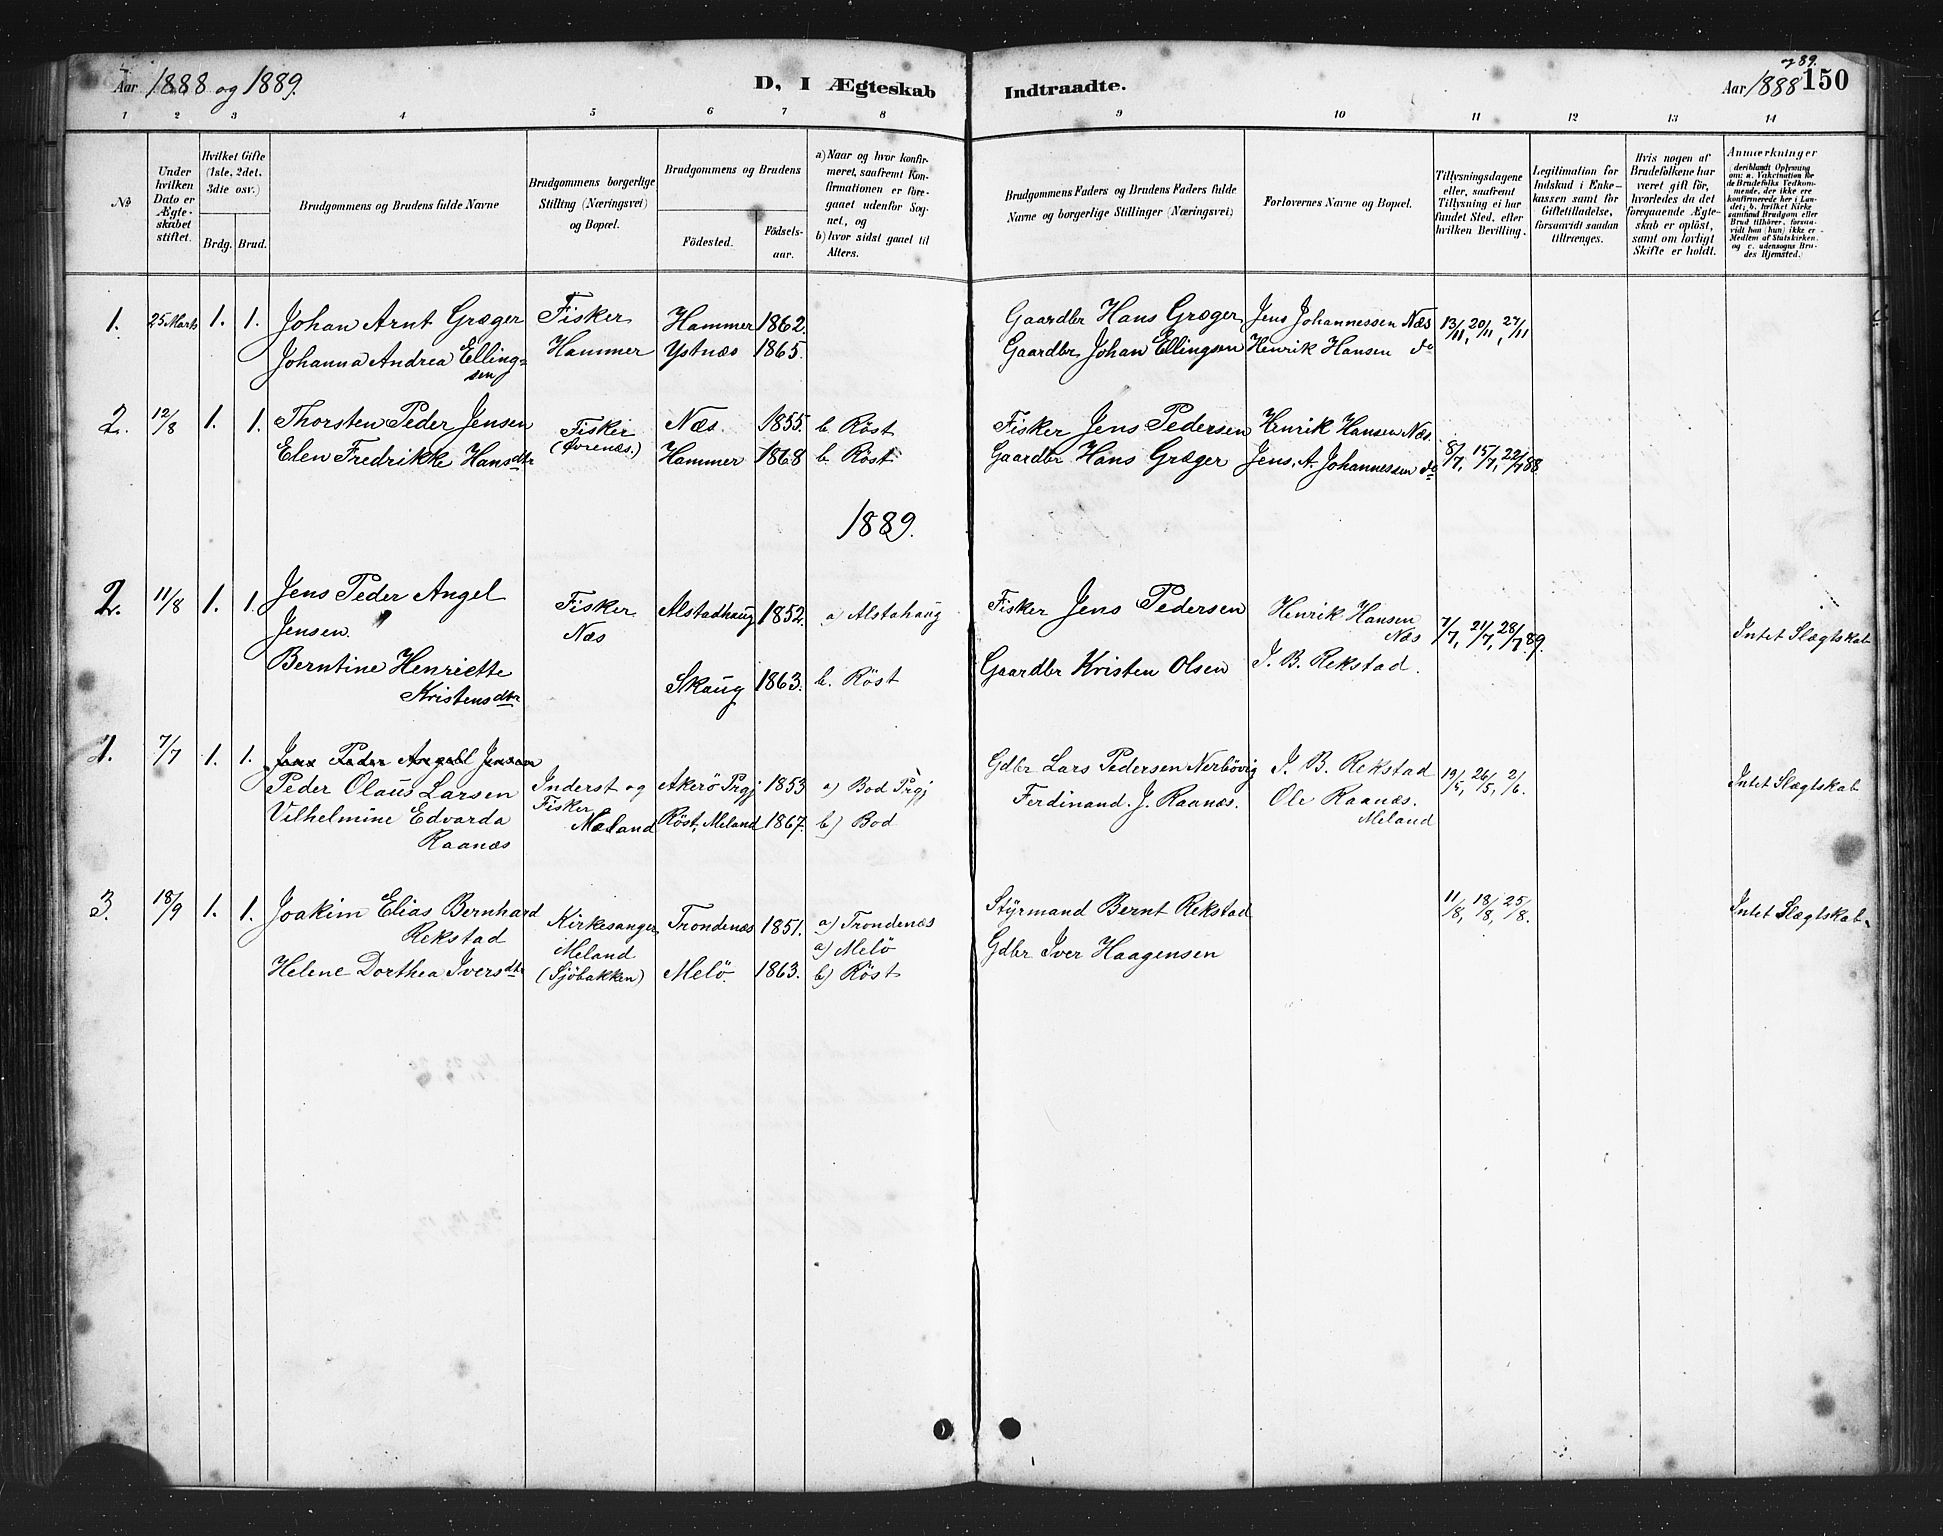 Aar 1888 og 1889.
D, I Ægteskab
Indtraadte.
og 89.
Aar 1888 150
1 2 3 4 5 6 7 8 9 10 11 12 13 14
No
Under hvilken Dato er Ægteskabet stiftet.
Hvilket Gifte (1ste, 2det, 3die osv.)
Brdg. Brud.
Brudgommens og Brudens fulde Navne
Brudgommens borgerlige Stilling (Næringsvei) og Bopæl.
Brudgommens og Brudens
Fødested.
Fødsels-aar.
a) Naar og hvor konfirmeret, saafremt Konfirmationen er foregaaet udenfor Sognet, og
b) hvor sidst gaaet til Alters.
Brudgommens Faders og Brudens Faders fulde Navne og borgerlige Stillinger (Næringsvei)
Forlovernes Navne og Bopæl.
Tillysningsdagene eller, saafremt Tillysning ei har fundet Sted, efter hvilken Bevilling.
Legitimation for Indskud i Enkekassen samt for Giftetilladelse, forsaavidt saadan tiltrænges.
Hvis nogen af Brudefolkene har været gift før, hvorledes da det foregaaende Ægteskab er opløst, samt om lovligt Skifte er holdt.
Anmærkninger
deriblandt Oplysning om: a. Vakcination for de Brudefolks Vedkommende, der ikke ere konfirmerede her i Landet; b. hvilket Kirkesamfund Brudgom eller Brud tilhører, forsaavidt han (hun) ikke er Medlem af Statskirken, og c. udensogns Brudes Hjemsted.)
1. 25 Marts 1. 1. Johan Arnt Græger Fisker Hammer 1862. Gaardbr Hans Græger Jens Johannessen Næs 13/11, 20/11, 27/11
Johanna Andrea Elling= Hammer Ystnæs 1865. Gaardbr. Johan Ellingsen Henrik Hansen do
sen
2. 12/8 1. 1. Thorsten Peder Jensen Fisker Næs 1855. b. Röst Fisker Jens Pedersen Henrik Hansen Næs.
Elen Fredrikke Hansdtr (Øvrenæs.) Hammer 1868 b. Röst Gaardbr Hans Græger Jens. A. Johannessen do 8/7, 15/7, 22/7 88.
1889.
2. 11/8 1. 1. Jens Peder Angel Fisker Alstadhaug 1852. a) Alstahaug Fisker Jens Pedersen Henrik Hansen
Jensen. Næs Næs 7/7, 21/7, 28/7 89. Intet Slægtskab
Berntine Henriette Skaug 1863. b. Röst Gaardbr Kristen Olsen J. B. Rekstad.
Kristensdtr
1. 7/7 1. 1. Jens Peder Angell Jensen
Peder Olaus Larsen Inderst og Akerö Prgj 1853 a) Bod Prgj Gdbr Lars Pedersen Nerbövig J. B. Rekstad 19/5, 26/5, 2/6. Intet Slægtskab
Vilhelmine Edvarda Fisker Mæland Röst, Meland 1867. b) Bod Ferdinand. J. Raanæs. Ole Raanæs.
Raanæs Meland
3. 18/9 1. 1. Joakim Elias Bernhard Kirkesanger Trondenæs 1851. a) Trondenæs Styrmand Bernt Rekstad 11/8, 18/8, 25/8. Intet Slægtskab.
Rekstad Meland a) Melö
Helene Dorthea Iversdtr (Sjöbakken) Melö. 1863. b) Röst Gdbr Iver Haagensen